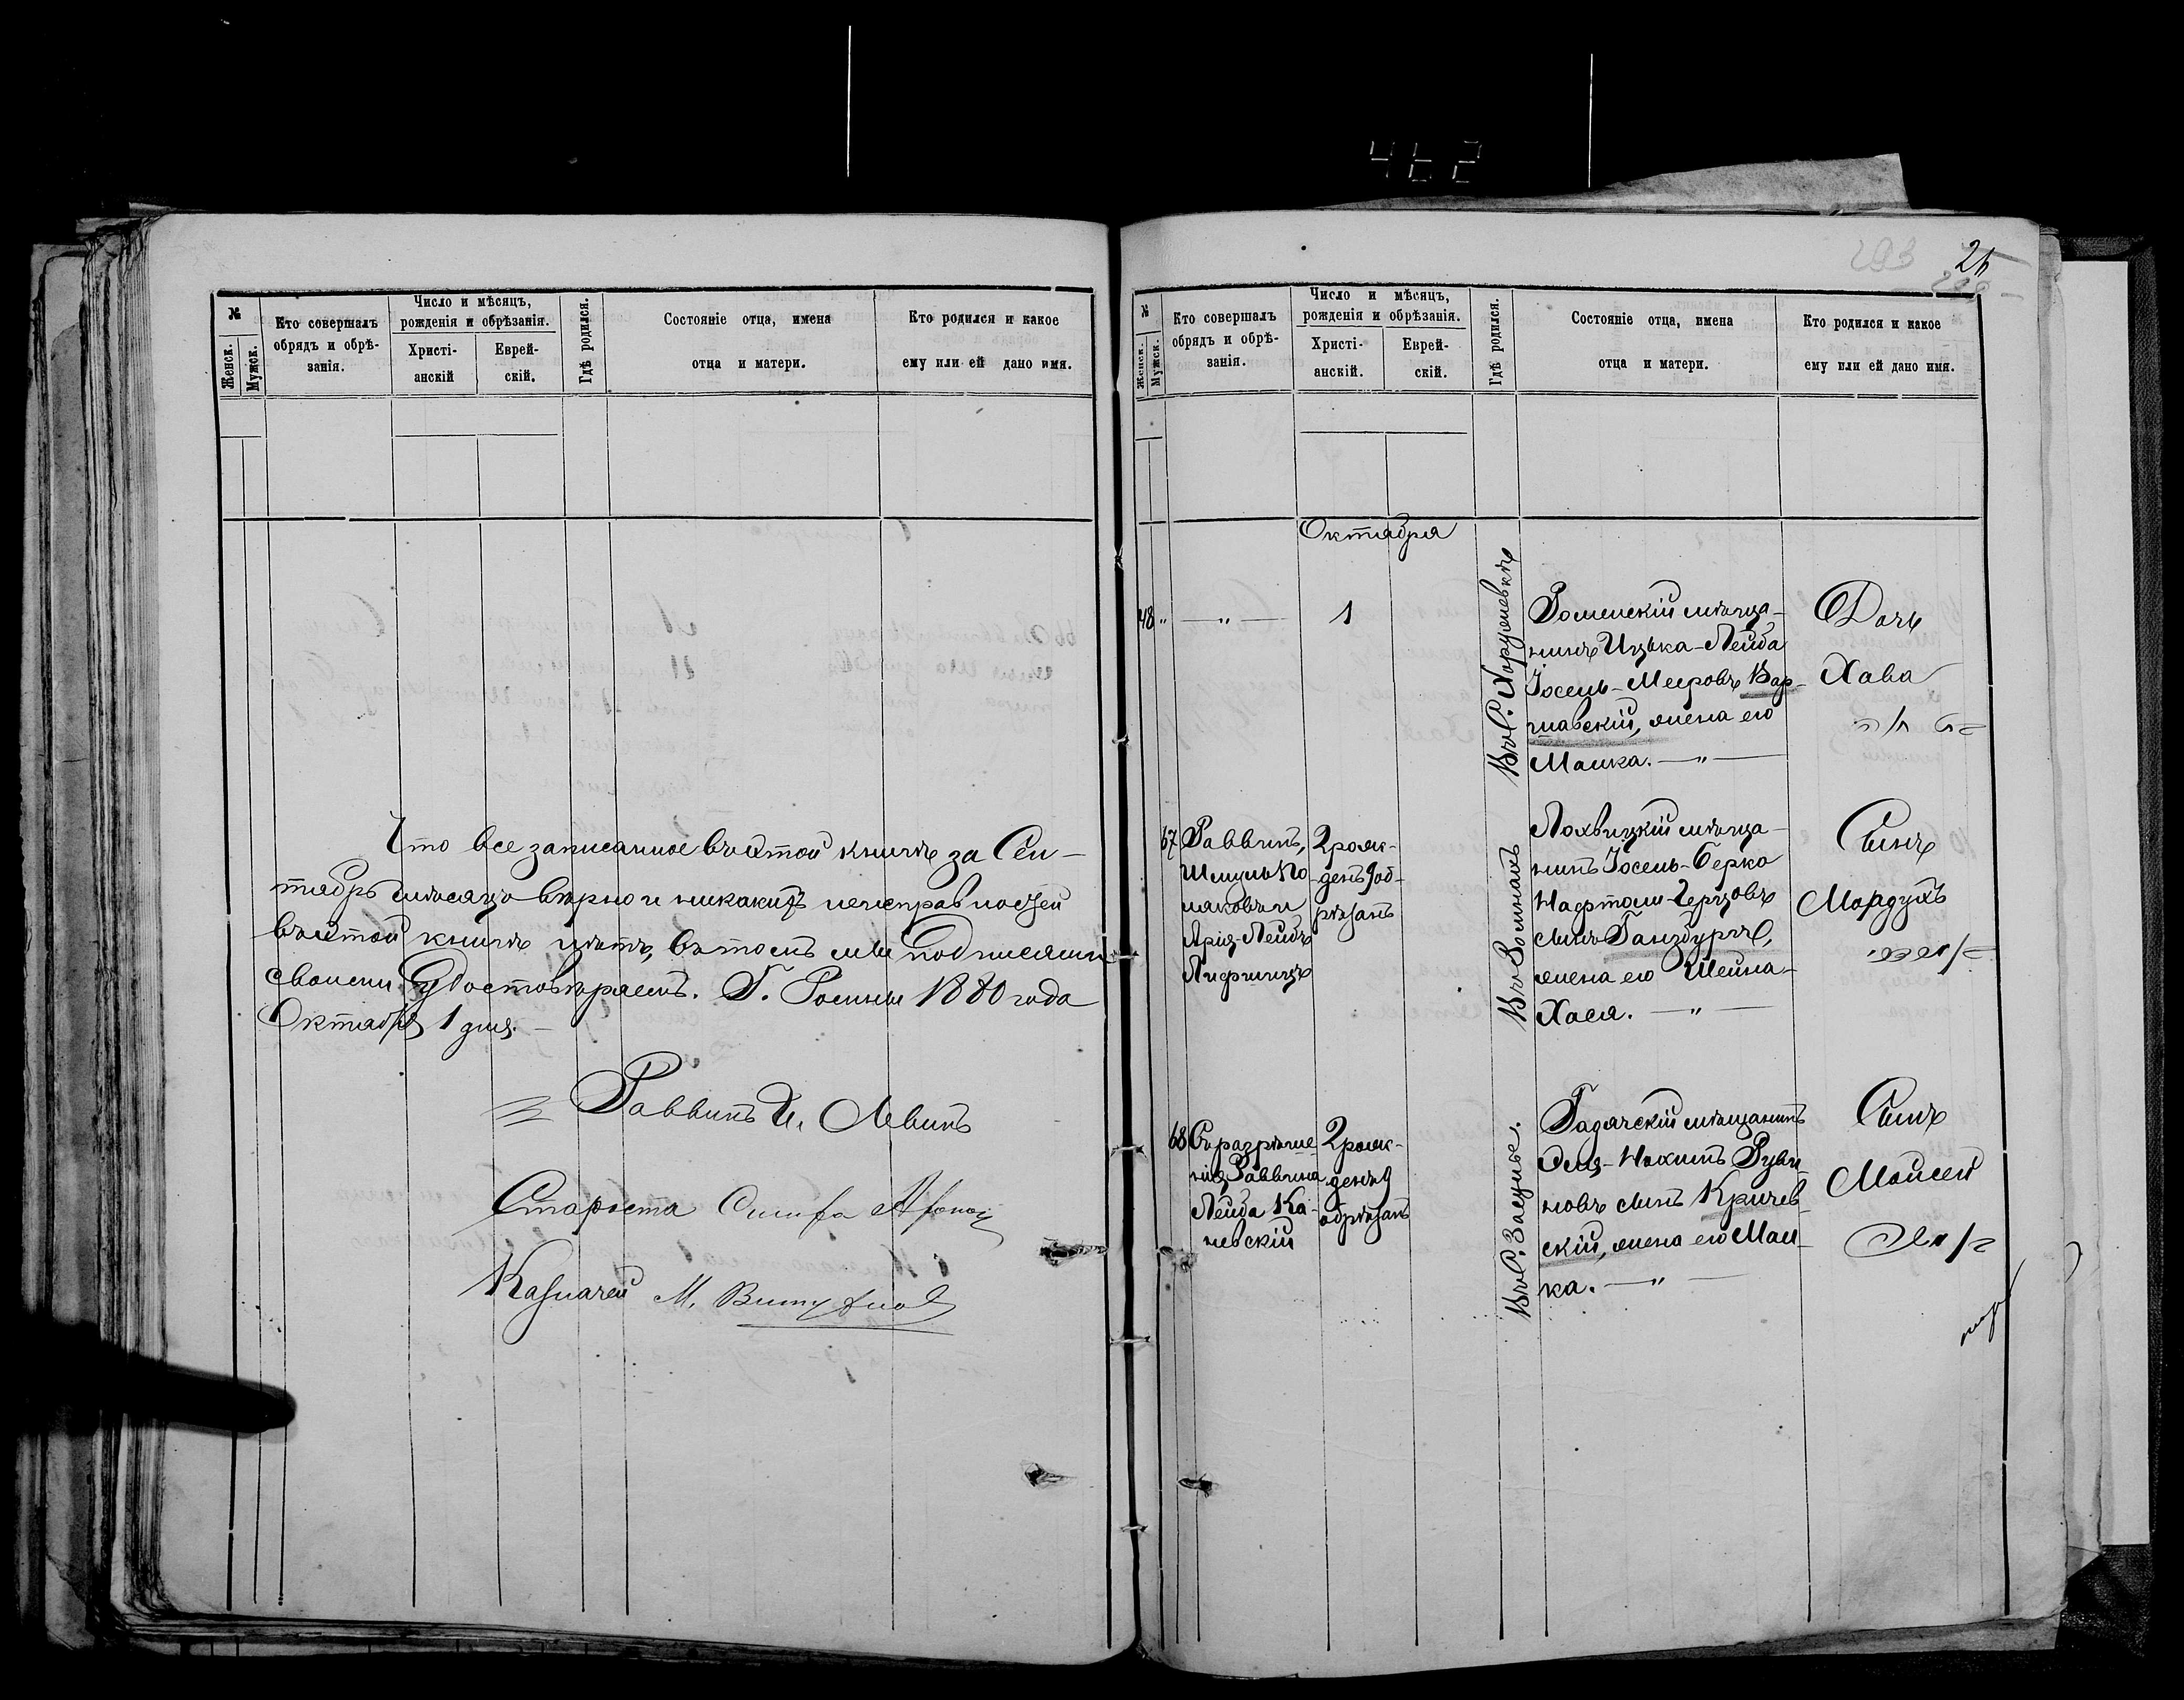 462
293
26
№
Женск.
Мужск.
Кто совершалъ
обрядъ и обрѣ-
занія.
Число и мѣсяцъ,
рожденія и обрѣзанія.
Христі-
анскій
Еврей-
скій.
Гдѣ родился.
Состояніе отца, имена
отца и матери.
Кто родился и какое
ему или ей дано имя.
Что все записанное въ этой книгѣ за Сен-
тябрь мѣсяцъ вѣрно и никакихъ неисправностей
въ этой книгѣ нѣтъ, въ томъ мы подписями
своими удостовѣряемъ. Г. Ромны 1880 года
Октября 1 дня.
Раввинъ И. Левинъ
Староста
Казначей М.
№
Женск.
Мужск.
Кто совершалъ
обрядъ и обрѣ-
занія.
Число и мѣсяцъ,
рожденія и обрѣзанія.
Христі-
анскій.
Еврей-
скій.
Гдѣ родился.
Состояніе отца, имена
отца и матери.
Кто родился и какое
ему или ей дано имя.
Октября
48 " — " — 1
Въ С. Хоружевкѣ
Роменскій мѣща-
нинъ Ицька-Лейба
Іосель-Мееровъ Вар-
шавскій, жена его
Машка. — " —
Дочь
Хава
67
Раввинъ,
Шмуль По-
ляковъ и
Арія-Лейбъ
Лифшицъ
2 рож-
денъ 9 об-
рѣзанъ
Въ Ромнахъ
Лохвицкій мѣща-
нинъ Іосель-Берко
Нафтоли-Герцовъ
сынъ Ганзбургъ,
жена его Шейна-
Хася. — " —
Сынъ
Мордухъ
68
Съ разрѣше-
нія Раввина
Лейба Ка-
невскій
2 рож-
денъ 9
обрѣзанъ
Въ С. Засульѣ.
Гадячскій мѣщанинъ
Эля-Нохимъ Руви-
новъ сынъ Кричев-
скій, жена его Маш-
ка. — " —
Сынъ
Мойсей